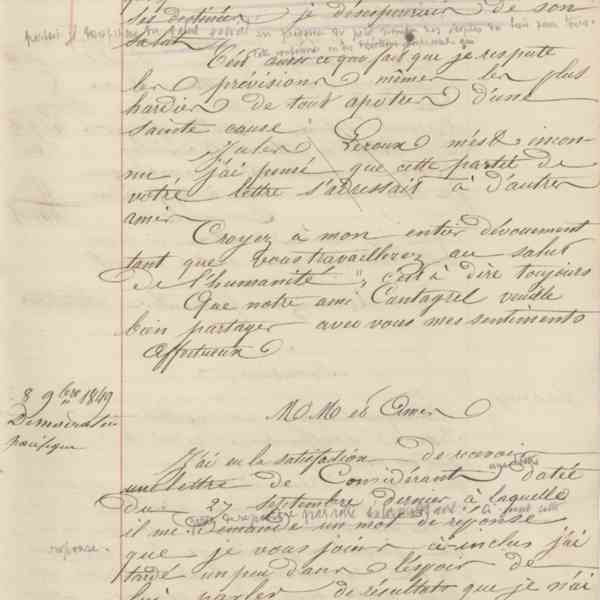 ses destinées je désespérerais de son
salut.
C'est aussi ce qui fait que je respecte
les prévisions même les plus
hardies de tout apotres d'une
sainte cause.
Jules Leroux m'est incon-
nu, j'ai pensé que cette partie de
votre lettre s'adressait à d'autres
amis
Croyez à mon entier dévouement
tant que vous travaillerez au salut
de l'humanité, c'est à dire toujours
Que notre ami Cantagrel veuille
bien partager avec vous mes sentiments
affectueux
8 9bre 1849
Démocratie
pacifique
M M et Amis
J'ai eu la satisfaction de recevoir
une lettre de Considérant datée
du 27 septembre dernier à laquelle
il me demande un mot de réponse
réponse.
que je vous joins ci-inclus j'ai
tardé un peu dans l'espoir de
lui parler de résultats que je n'ai